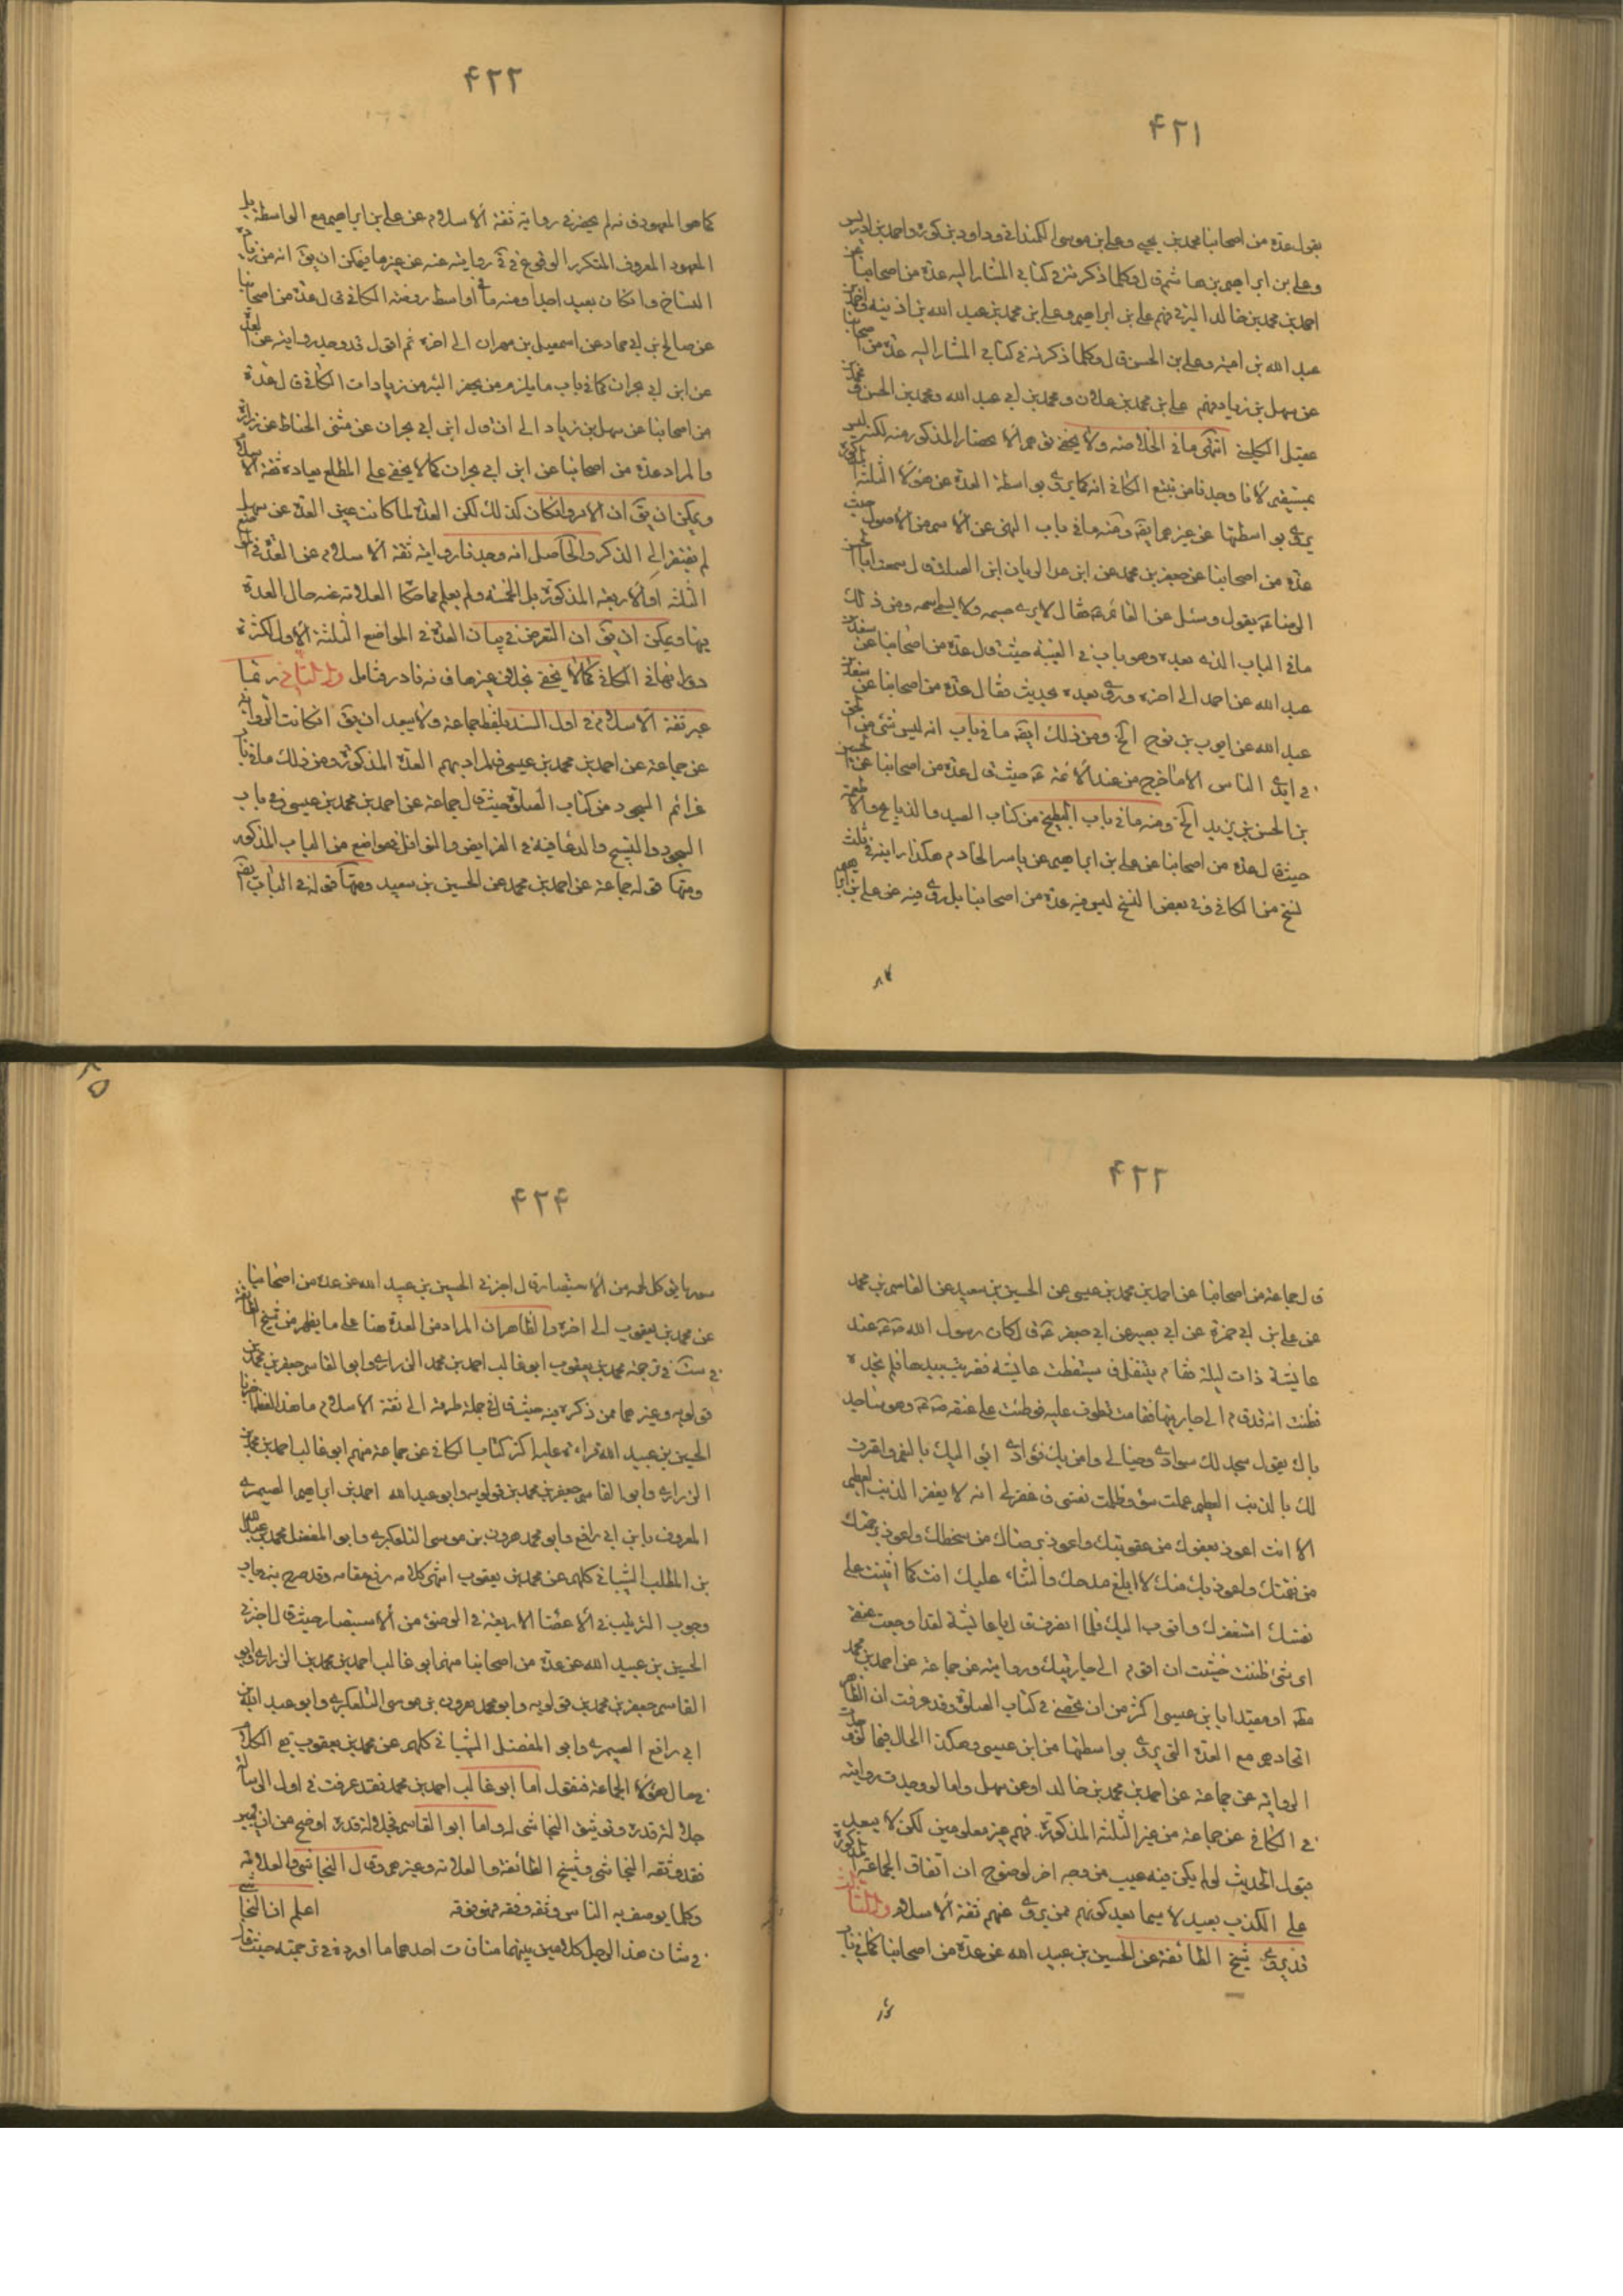 ۴۲۱
بقول عدة من اصحابنا محمد بن يحيى وعلى بن موسى الكمندانى وداود بن كورة واحمد بن ادريس
وعلى بن ابراهيم بن هاشم قال وكلما ذكرته فى كتابى المشار اليه عدة من اصحابنا عن
احمد بن محمد بن خالد البرقى فهم على بن ابراهيم وعلى بن محمد بن عبد الله بن اذينة واحمد بن
عبد الله بن امية وعلى بن الحسن قال وكلما ذكرته فى كتابى المشار اليه عدة من اصحابنا
عن سهل بن زياد فهم على بن محمد بن علان ومحمد بن ابى عبد الله ومحمد بن الحسن ومحمد بن
عقيل الكلينى انتهى ما فى الخلاصة ولا يخفى توهم الانحصار المذكور منه لكنه ليس
بمستقيم لانا وجدنا من تتبع الكافى انه كما يروى بواسطة العدة عن هؤلاء الثلثة المذكورة
يروى بواسطتها عن غيرهم ايضا ومنه ما فى باب النهى عن الاسم من الاصول حيث
عدة من اصحابنا عن جعفر بن محمد عن ابن فضال عن الريان ابن الصلت قال سمعت ابا الحسن
الرضا ع يقول وسئل عن القائم ع فقال لا يرى جسمه ولا يسمى اسمه ومن ذلك
ما فى الباب الذى بعده وهو باب فى الغيبة حيث قال عدة من اصحابنا عن سعد بن
عبد الله عن احمد الى اخره وروى بعده بحديث فقال عدة من اصحابنا عن سعد بن
عبد الله عن ايوب بن نوح الخ ومن ذلك ايضا ما فى باب انه ليس شئ من الحق
فى ايدى الناس الا ما خرج من عند الائمة ع حيث قال عدة من اصحابنا عن الحسين
بن الحسن بن يزيد الخ ومنه ما فى باب البطيخ من كتاب الصيد والذبايح والاطعمة
حيث قال عدة من اصحابنا عن على بن ابراهيم عن ياسر الخادم هكذا رايته فى ثلث
نسخ من الكافى وفى بعض النسخ ليس فيه عدة من اصحابنا بل روى فيه عن على بن ابراهيم
كما
۴۲۲
كما هو المعهود فانه لم يحضرنى رواية ثقة الاسلام عن على بن ابراهيم مع الواسطة بل
المعهود المعروف المتكرر الوقوع فى روايته عنه عن غيرها فيمكن ان يق انه من زيادة
النساخ وان كان بعيد اجدا ومنه ما فى اواسط روضة الكافى قال عدة من اصحابنا
عن صالح بن ابى حماد عن اسمعيل بن مهران الى اخره ثم اقول قد وجد روايته عن العدة
عن ابن ابى نجران كما فى باب ما يلزم من يحفر البئر من زيادات الكافى قال عدة
من اصحابنا عن سهل بن زياد الى ان قال ابن ابى نجران عن مثنى الحناط عن زرارة
والمراد عدة من اصحابنا عن ابن ابى نجران كما لا يخفى على المطلع بعادة ثقة الاسلام
ويمكن ان يق ان الامر وان كان كذلك لكن العدة لما كانت عين العدة عن سهل
لم يفتقر الى الذكر والحاصل انه وجدنا رواية ثقة الاسلام عن العدة فى غير
الثلثة او الاربعة المذكورة بل الخمسة ولم يعلم مما حكاه العلامة عنه حال العدة
فيها ويمكن ان يق ان التعرض فى بيان العدة فى المواضع الثلثة الاول لكثرة
دورانها فى الكافى كما لا يخفى بخلاف غيرها فانه نادر فتامل واما الثانى ربما
عبر ثقة الاسلام فى اول السند بلفظ جماعة ولا يبعد ان يق ان كانت الرواية
عن جماعة عن احمد بن محمد بن عيسى فالمراد بهم العدة المذكورة ومن ذلك ما فى باب
عزائم السجود من كتاب الصلوة حيث قال جماعة عن احمد بن محمد بن عيسى وفى باب
السجود والتسبيح والدعاء فيه فى الفرايض والنوافل فى مواضع من الباب المذكور
ومنها قوله جماعة عن احمد بن محمد عن الحسين بن سعيد ومنها قوله فى الباب ايضا
۴۲۳
قال جماعة من اصحابنا عن احمد بن محمد بن عيسى عن الحسين بن سعيد عن القاسم بن محمد
عن على بن ابى حمزة عن ابى بصير عن ابى جعفر ع قال كان رسول الله ص عند
عايشة ذات ليلة فقام يتنفل فاستيقظت عايشة فضربت بيدها فلم تجده
فظنت انه قد قام الى جاريتها فقامت تطوف عليه فوطئت على عنقه ص وهو ساجد
باك يقول سجد لك سوادى وخيالى وامن بك فؤادى ابوء اليك بالنعم واعترف
لك بالذنب العظيم عملت سوء وظلمت نفسى فاغفر لى انه لا يغفر الذنب العظيم
الا انت اعوذ بعفوك من عقوبتك واعوذ برضاك من سخطك واعوذ برحمتك
من نقمتك واعوذ بك منك لا ابلغ مدحك والثناء عليك انت كما اثنيت على
نفسك استغفرك واتوب اليك فلما انصرف قال يا عايشة لقد اوجعت عنقى
اى شئ ظننت خشيت ان اقوم الى جاريتك وروايته عن جماعة عن احمد بن محمد
مطلقا او مقيدا بابن عيسى اكثر من ان تحصى فى كتاب الصلوة وقد عرفت ان الظاهر
اتحادهم مع العدة التى يروى بواسطتها من ابن عيسى وهكذا الحال فيما لو وجدت
الرواية عن جماعة عن احمد بن محمد بن خالد او عن سهل واما لو وجدت روايته
فى الكافى عن جماعة من غير الثلثة المذكورة فهم غير معلومين لكن لا يبعد
قبول الحديث لو لم يكن فيه عيب من وجه اخر لوضوح ان اتفاق الجماعة المذكورة
على الكذب بعيد لا سيما بعد كونهم ممن يروى عنهم ثقة الاسلام والثالث
قد يروى شيخ الطائفة عن الحسين بن عبيد الله عن عدة من اصحابنا كما فى باب
۴۲۴
سور ما يؤكل لحمه من الاستبصار قال اخبرنى الحسين بن عبيد الله عن عدة من اصحابنا
عن محمد بن يعقوب الى اخره والظاهر ان المراد من العدة هنا على ما يظهر من شيخ الطائفة
فى ست فى ترجمة محمد بن يعقوب ابو غالب احمد بن محمد الزرارى وابو القاسم جعفر بن محمد بن
قولويه وغيرهما ممن ذكره فيه حيث قال فى جملة طرقه الى ثقة الاسلام ما هذا لفظه اخبرنا
الحسين بن عبيد الله قراءة عليه اكثر كتاب الكافى عن جماعة منهم ابو غالب احمد بن محمد
الزرارى وابو القاسم جعفر بن محمد بن قولويه وابو عبد الله احمد بن ابراهيم الصيمرى
المعروف بابن ابى رافع وابو محمد هرون بن موسى التلعكبرى وابو المفضل محمد بن عبد الله
بن المطلب الشيبانى كلهم عن محمد بن يعقوب انتهى كلامه رفع مقامه وقد صرح به فى باب
وجوب الترتيب فى الاعضاء الاربعة فى الوضوء من الاستبصار حيث قال اخبرنى
الحسين بن عبيد الله عن عدة من اصحابنا منهم ابو غالب احمد بن محمد بن الزرارى وابو
القاسم جعفر بن محمد بن قولويه وابو محمد هرون بن موسى التلعكبرى وابو عبد الله بن
ابى رافع الصيمرى وابو المفضل الشيبانى كلهم عن محمد بن يعقوب بقى الكلام
فى حال هؤلاء الجماعة فنقول اما ابو غالب احمد بن محمد فقد عرفت فى اول الرسالة
جلالة قدره وتوثيق النجاشى له واما ابو القاسم فجلالة قدره اوضح من ان يبين
فقد وثقه النجاشى وشيخ الطائفة والعلامة وغيرهم وقال النجاشى والعلامة
وكلما يوصف به الناس وثقة وفقه فهو فوقه اعلم ان النجاشى
فى شان هذا الرجل كلامين بينهما منافات احدهما ما اورده فى ترجمته حيث قال